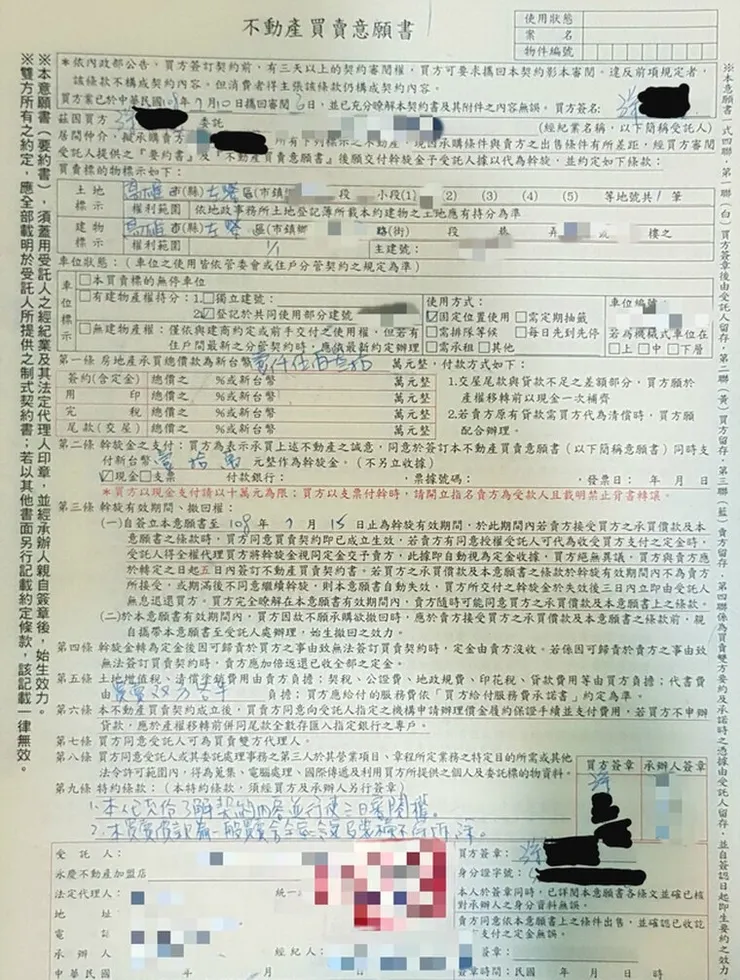 不動產買賣意願書
使用狀態
案名
物件編號
＊依內政部公告，買方簽訂契約前，有三天以上的契約審閱權，買方可要求攜回本契約影本審閱。違反前項規定者，
該條款不構成契約內容。但消費者得主張該條款仍構成契約內容。
買方業已於中華民國108年7月10日攜回審閱 日，並已充分瞭解本契約書及其附件之內容無誤。買方簽名：
茲因買方 委託 (經紀業名稱，以下簡稱受託人)
居間仲介，擬承購賣方 所有下列標示之不動產，現因承購條件與賣方之出售條件有所差距，經買方審閱
受託人提供之『要約書』及『不動產買賣意願書』後願交付斡旋金予受託人據以代為斡旋，並約定如下條款：
買賣標的物標示如下：
土地標示 高雄市(縣)左營區(市鎮鄉 段 小段(1) (2) (3) (4) (5) 等地號共1筆
權利範圍 依地政事務所土地登記簿所載本約建物之土地應有持分為準
建物標示 高雄市(縣)左營區(市鎮鄉 路(街) 段 巷 弄 號 樓之
權利範圍 1/1 主建號：
車位狀態：(車位之使用皆依管委會或住戶分管契約之規定為準)
車位標示
□本買賣標的無停車位
□有建物產權持分：1.□獨立建號：
2.☑登記於共同使用部分建號
□無建物產權：僅依與建商約定或前手交付之使用權，但若有
戶間最新之分管契約時，應依最新約定辦理
使用方式：
☑固定位置使用 □需定期抽籤
□需排隊等候 □每日先到先停
□需承租 □其他
車位編號：
若為機械式車位在
□上 □中 □下層
第一條 房地產承買總價款為新台幣壹仟伍百 萬元整，付款方式如下：
簽約(含定金) 總價之 %或新台幣 萬元整
用印 總價之 %或新台幣 萬元整
完稅 總價之 %或新台幣 萬元整
尾款(交屋) 總價之 %或新台幣 萬元整
1.交屋尾款與貸款不足之差額部分，買方願於
產權移轉前以現金一次補齊
2.若賣方原有貸款需買方代為清償時，買方願
配合辦理。
第二條 斡旋金之支付：買方為表示承買上述不動產之誠意，同意於簽訂本不動產買賣意願書(以下簡稱意願書)同時支
付新台幣壹拾萬元整作為斡旋金。(不另立收據)
☑現金□支票 付款銀行： ，票據號碼： ，發票日： 年 月 日
＊買方以現金支付請以十萬元為限；買方以支票付斡時，請開立指名賣方為受款人且載明禁止背書轉讓。
第三條 斡旋有效期間、撤回權：
(一)自簽立本意願書至108年7月15日止為斡旋有效期間，於此期間內若賣方接受買方之承買價款及本
意願書之條款時，買方同意買賣契約即已成立生效，若賣方有同意授權受託人可代為收受買方支付之定金時，
受託人得全權代理買方將斡旋金視同定金交予賣方，此據即自動視為定金收據，買方絕無異議，買方與賣方應
於轉定之日起五日內簽訂不動產買賣契約書。若買方之承買價款及本意願書之條款於斡旋有效期間內不為賣方
所接受，或期滿後不同意繼續斡旋，則本意願書自動失效，買方所交付之斡旋金於失效後三日內立即由受託人
無息返還買方。買方完全瞭解在本意願書有效期間內，賣方隨時可能同意買方之承買價款及本意願書上之條款。
(二)於本意願書有效期間內，買方因故不願承購欲撤回時，應於賣方接受買方之承買價款及本意願書之條款前，親
自攜帶本意願書至受託人處辦理，始生撤回之效力。
第四條 斡旋金轉為定金後因可歸責於買方之事由致無法簽訂買賣契約時，定金由賣方沒收。若係因可歸責於賣方之事由致
無法簽訂買賣契約時，賣方應加倍返還已收全部之定金。
第五條 土地增值稅、清償塗銷費用由賣方負責；契稅、公證費、地政規費、印花稅、貸款費用等由買方負責；代書費
由買賣双方各半負擔；買方應給付的服務費依「買方給付服務費承諾書」約定為準。
第六條 本不動產買賣契約成立後，買賣方同意向受託人指定之機構申請辦理價金履約保證手續並支付費用，若買方不申辦
貸款，應於產權移轉前併同尾款全數存匯入指定銀行之專戶。
第七條 買方同意受託人可為買賣雙方代理人。
第八條 買方同意受託人或其委託處理事務之第三人於其營業項目、章程所定業務之特定目的所需或其他
法令許可範圍內，得為蒐集、電腦處理、國際傳遞及利用買方所提供之個人及委託標的物資料。
第九條 特約條款：(本特約條款，須經買方及承辦人另行簽章)
1.本人已充份了解契約內容並行使三日審閱權。
買方簽章 承辦人簽章
受託人：
永慶不動產加盟店
法定代理人： 統一
地址
電話
承辦人： 經紀人：
中華民國 年 月
買方簽章：
身分證字號：
本人於簽章同時，已詳閱本意願書各條文並確已核
對承辦人之身分資料無誤。
賣方同意依本意願書上之條件出售，並確認已收訖
支付之定金無誤。
簽章：
簽章時間：民國 年 月 日 時
※本意願書(要約書)，須蓋用受託人之經紀業及其法定代理人印章，並經承辦人親自簽章後，始生效力。
※雙方所有之約定，應全部載明於受託人所提供之制式契約書；若以其他書面另行記載約定條款，該記載一律無效。
※本意願書一式四聯，第一聯(白)買方簽章後由受託人留存，第二聯(黃)買方留存，第三聯(藍)賣方留存，第四聯係為買賣雙方要約及承諾時之憑據由受託人留存，並自簽認日起即生要約之效力